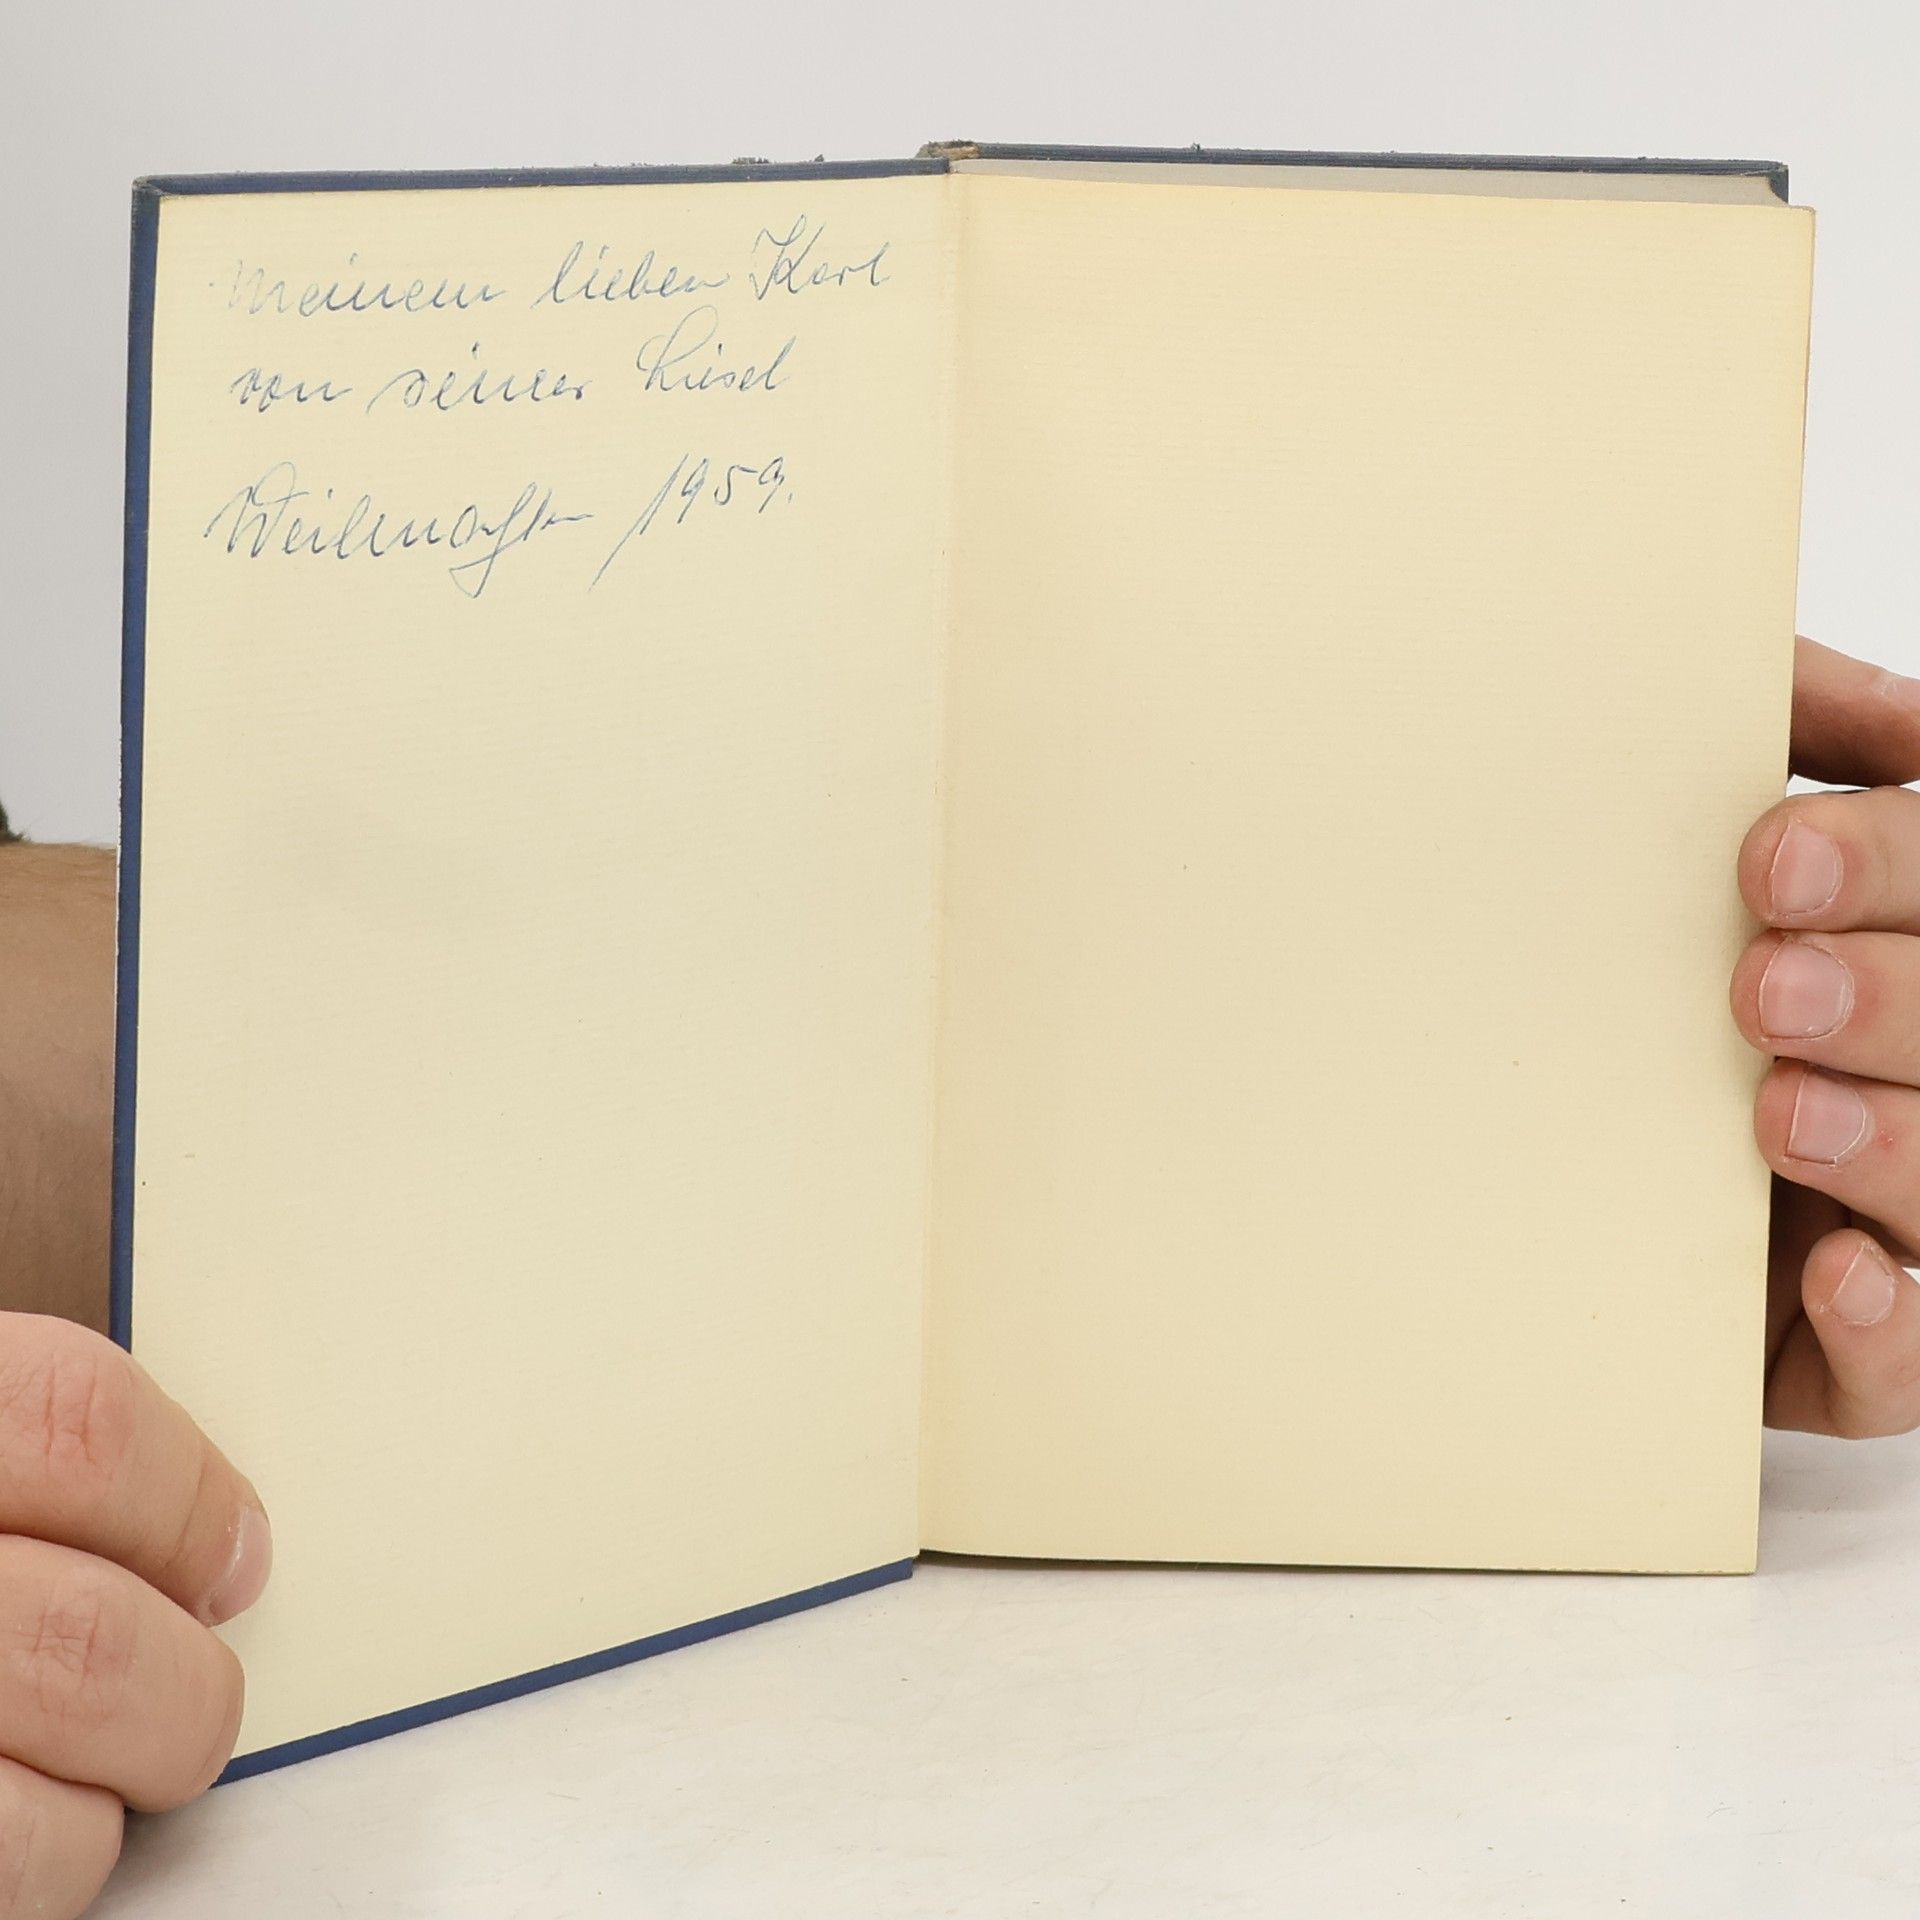 Meinem lieben Karl
von seiner Liesel
Weihnachten 1959.